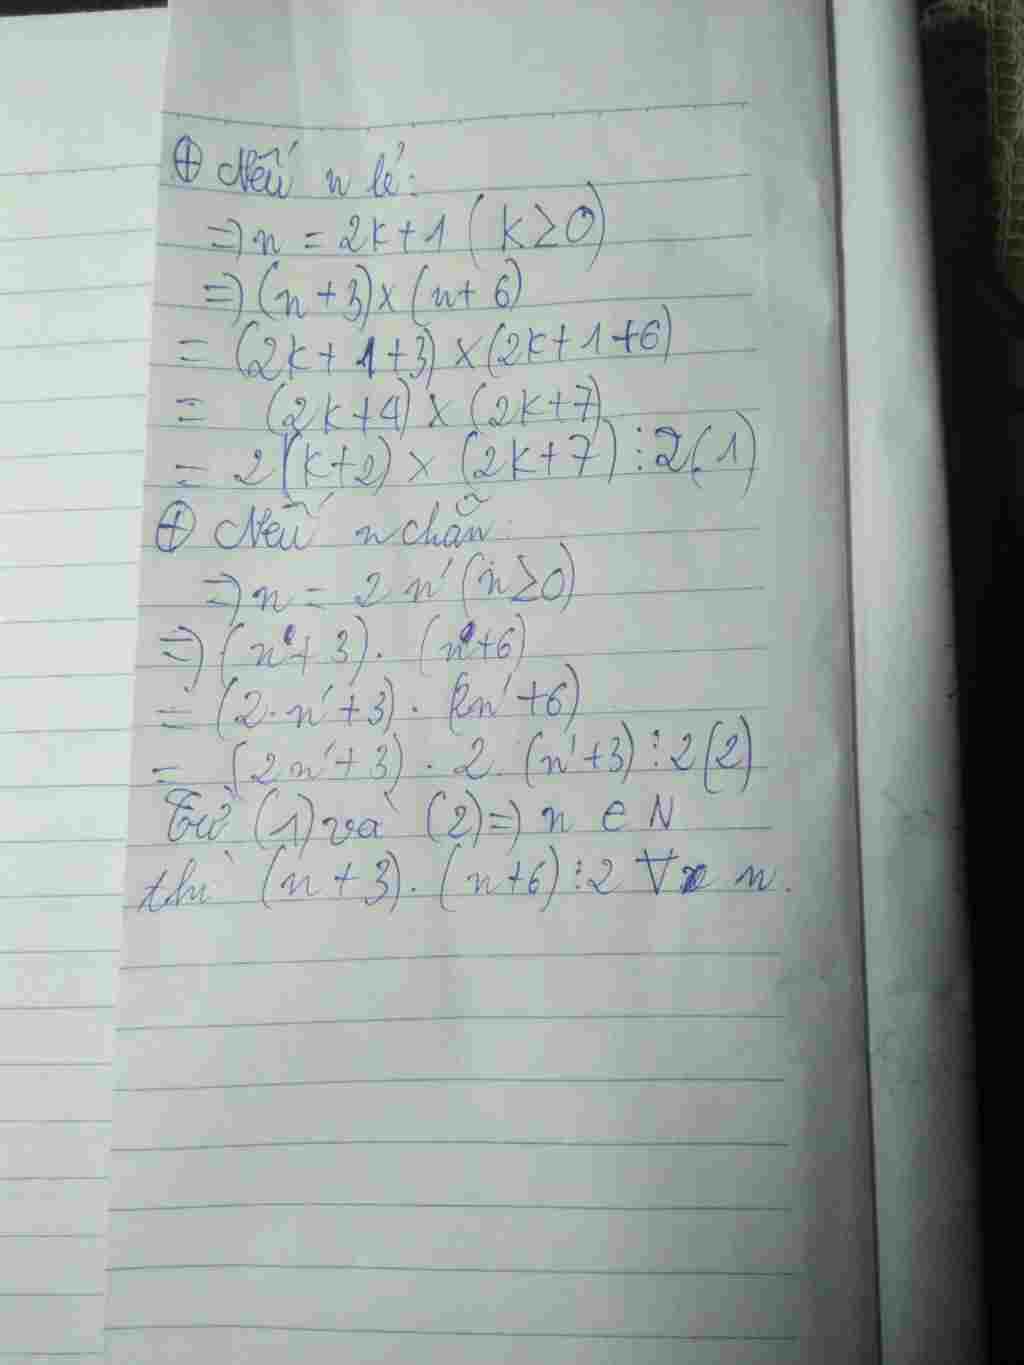 ⊕ Nếu n lẻ:
⇒ n = 2k+1 (k≥0)
⇒ (n+3)×(n+6)
= (2k+1+3)×(2k+1+6)
= (2k+4)×(2k+7)
= 2(k+2)×(2k+7)⋮2(1)
⊕ Nếu n chẵn:
⇒ n = 2n' (n≥0)
⇒ (n+3).(n+6)
= (2.n'+3).(2n'+6)
= (2n'+3).2.(n'+3)⋮2(2)
Từ (1) và (2)⇒ n ∈ N
thì (n+3).(n+6)⋮2 ∀ n.